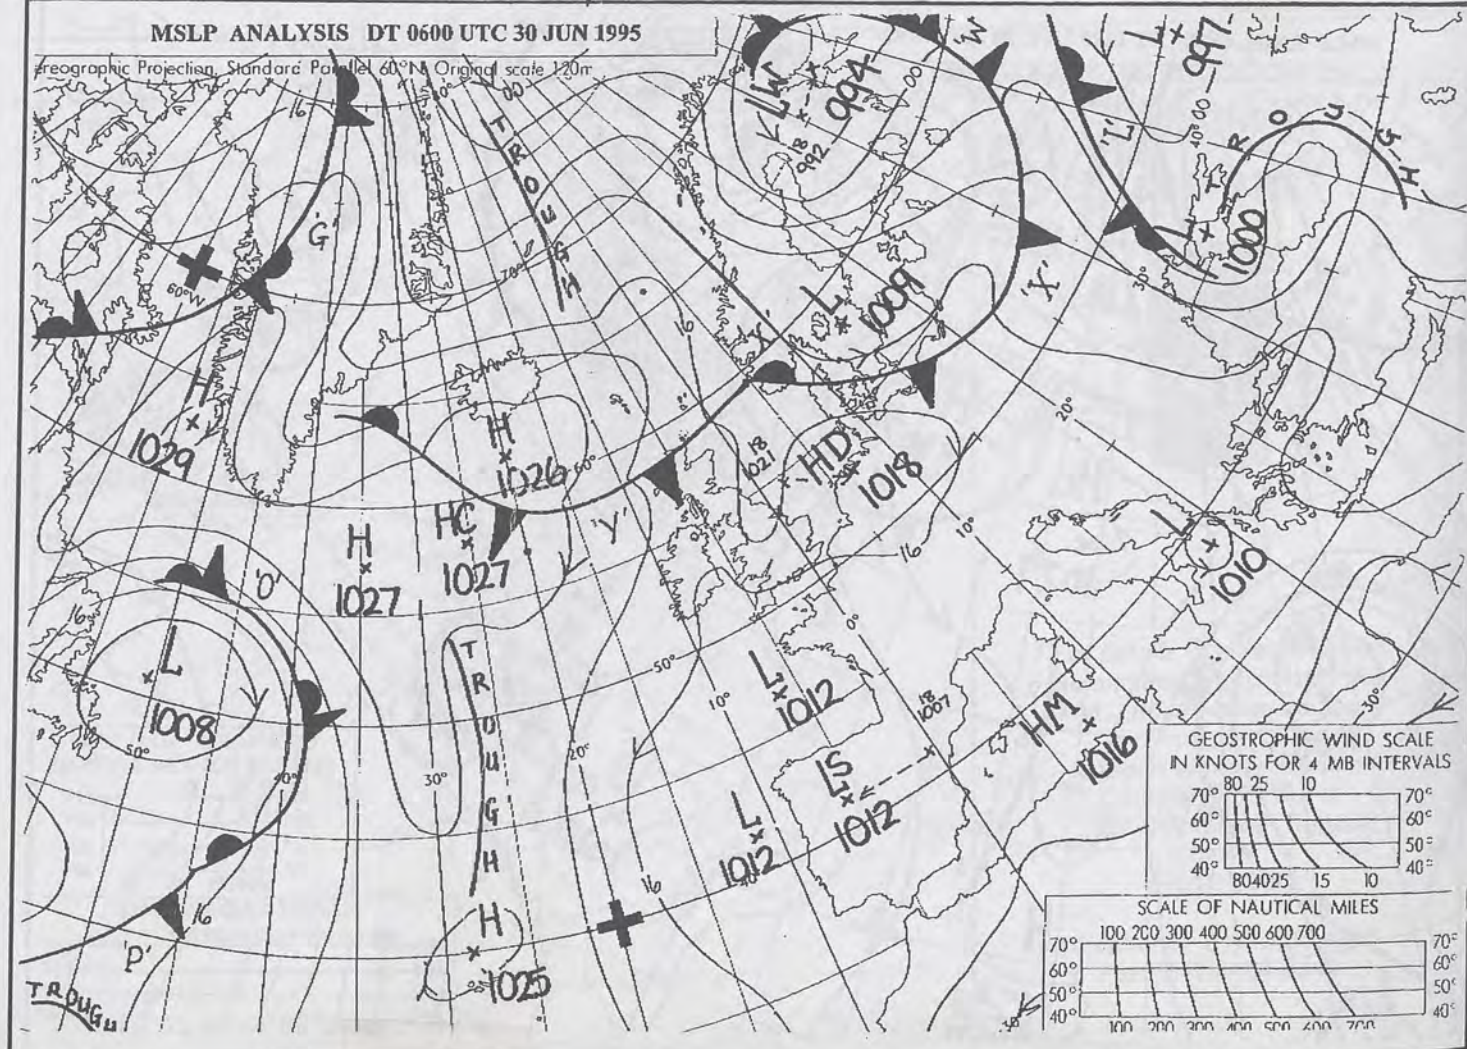 MSLP ANALYSIS DT 0600 UTC 30 JUN 1995
ereographic Projection, Standard Parallel 60°N, Original scale 1:20m
16
00
TROUGH
'W'
LW
994
18
992
00
L
997
'L'
40°
00
TROUGH
L
1000
'G'
60°W
70°
30°
'X'
L
1009
16
H
1029
20°
H
1026
60°
18
1021
HD
1018
HC
1027
'Y'
H
1027
10°
16
L
1010
'O'
16
0°
L
1008
50°
TROUGH
50°
10°
L
1012
18
1007
HM
1016
30°
40°
30°
20°
LS
1012
L
1012
40°
16
16
'P'
H
1025
TROUGH
GEOSTROPHIC WIND SCALE
IN KNOTS FOR 4 MB INTERVALS
80 25 10
70° 70°
60° 60°
50° 50°
40° 40°
80 40 25 15 10
SCALE OF NAUTICAL MILES
100 200 300 400 500 600 700
70° 70°
60° 60°
50° 50°
40° 40°
100 200 300 400 500 600 700